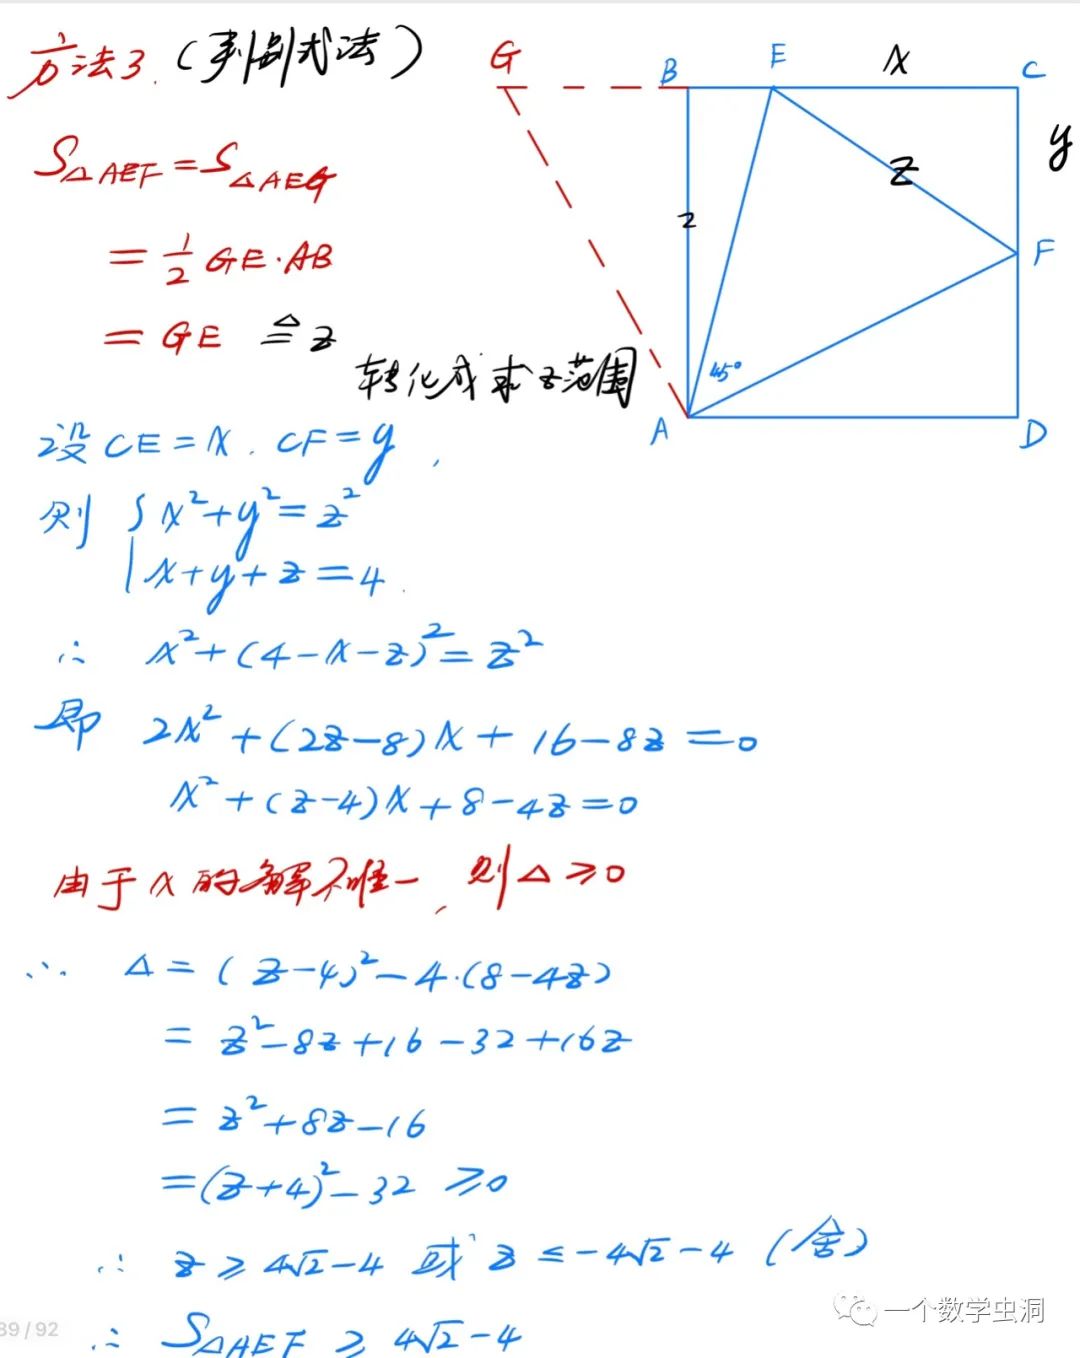 方法3.（判别式法）
S△AEF=S△AEG
=1/2 GE·AB
=GE ≜ z
转化成求z范围
G
B
E
x
C
y
z
2
F
45°
A
D
设CE=x.CF=y,
则{x²+y²=z²
x+y+z=4.
∴ x²+(4-x-z)²=z²
即 2x²+(2z-8)x+16-8z=0
x²+(z-4)x+8-4z=0
由于x的解不唯一,则△≥0
∴ △=(z-4)²-4·(8-4z)
=z²-8z+16-32+16z
=z²+8z-16
=(z+4)²-32 ≥0
∴ z≥4√2-4 或 z≤-4√2-4 (舍)
∴ S△AEF≥4√2-4
一个数学虫洞
89/92